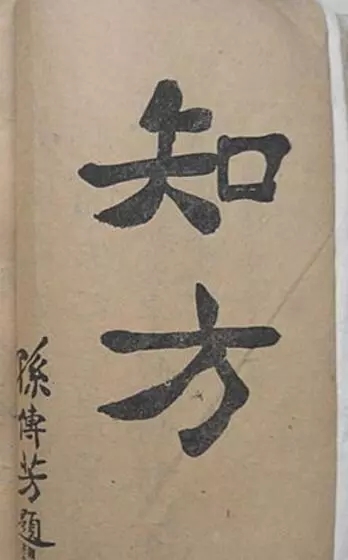 知方
孫傳芳題